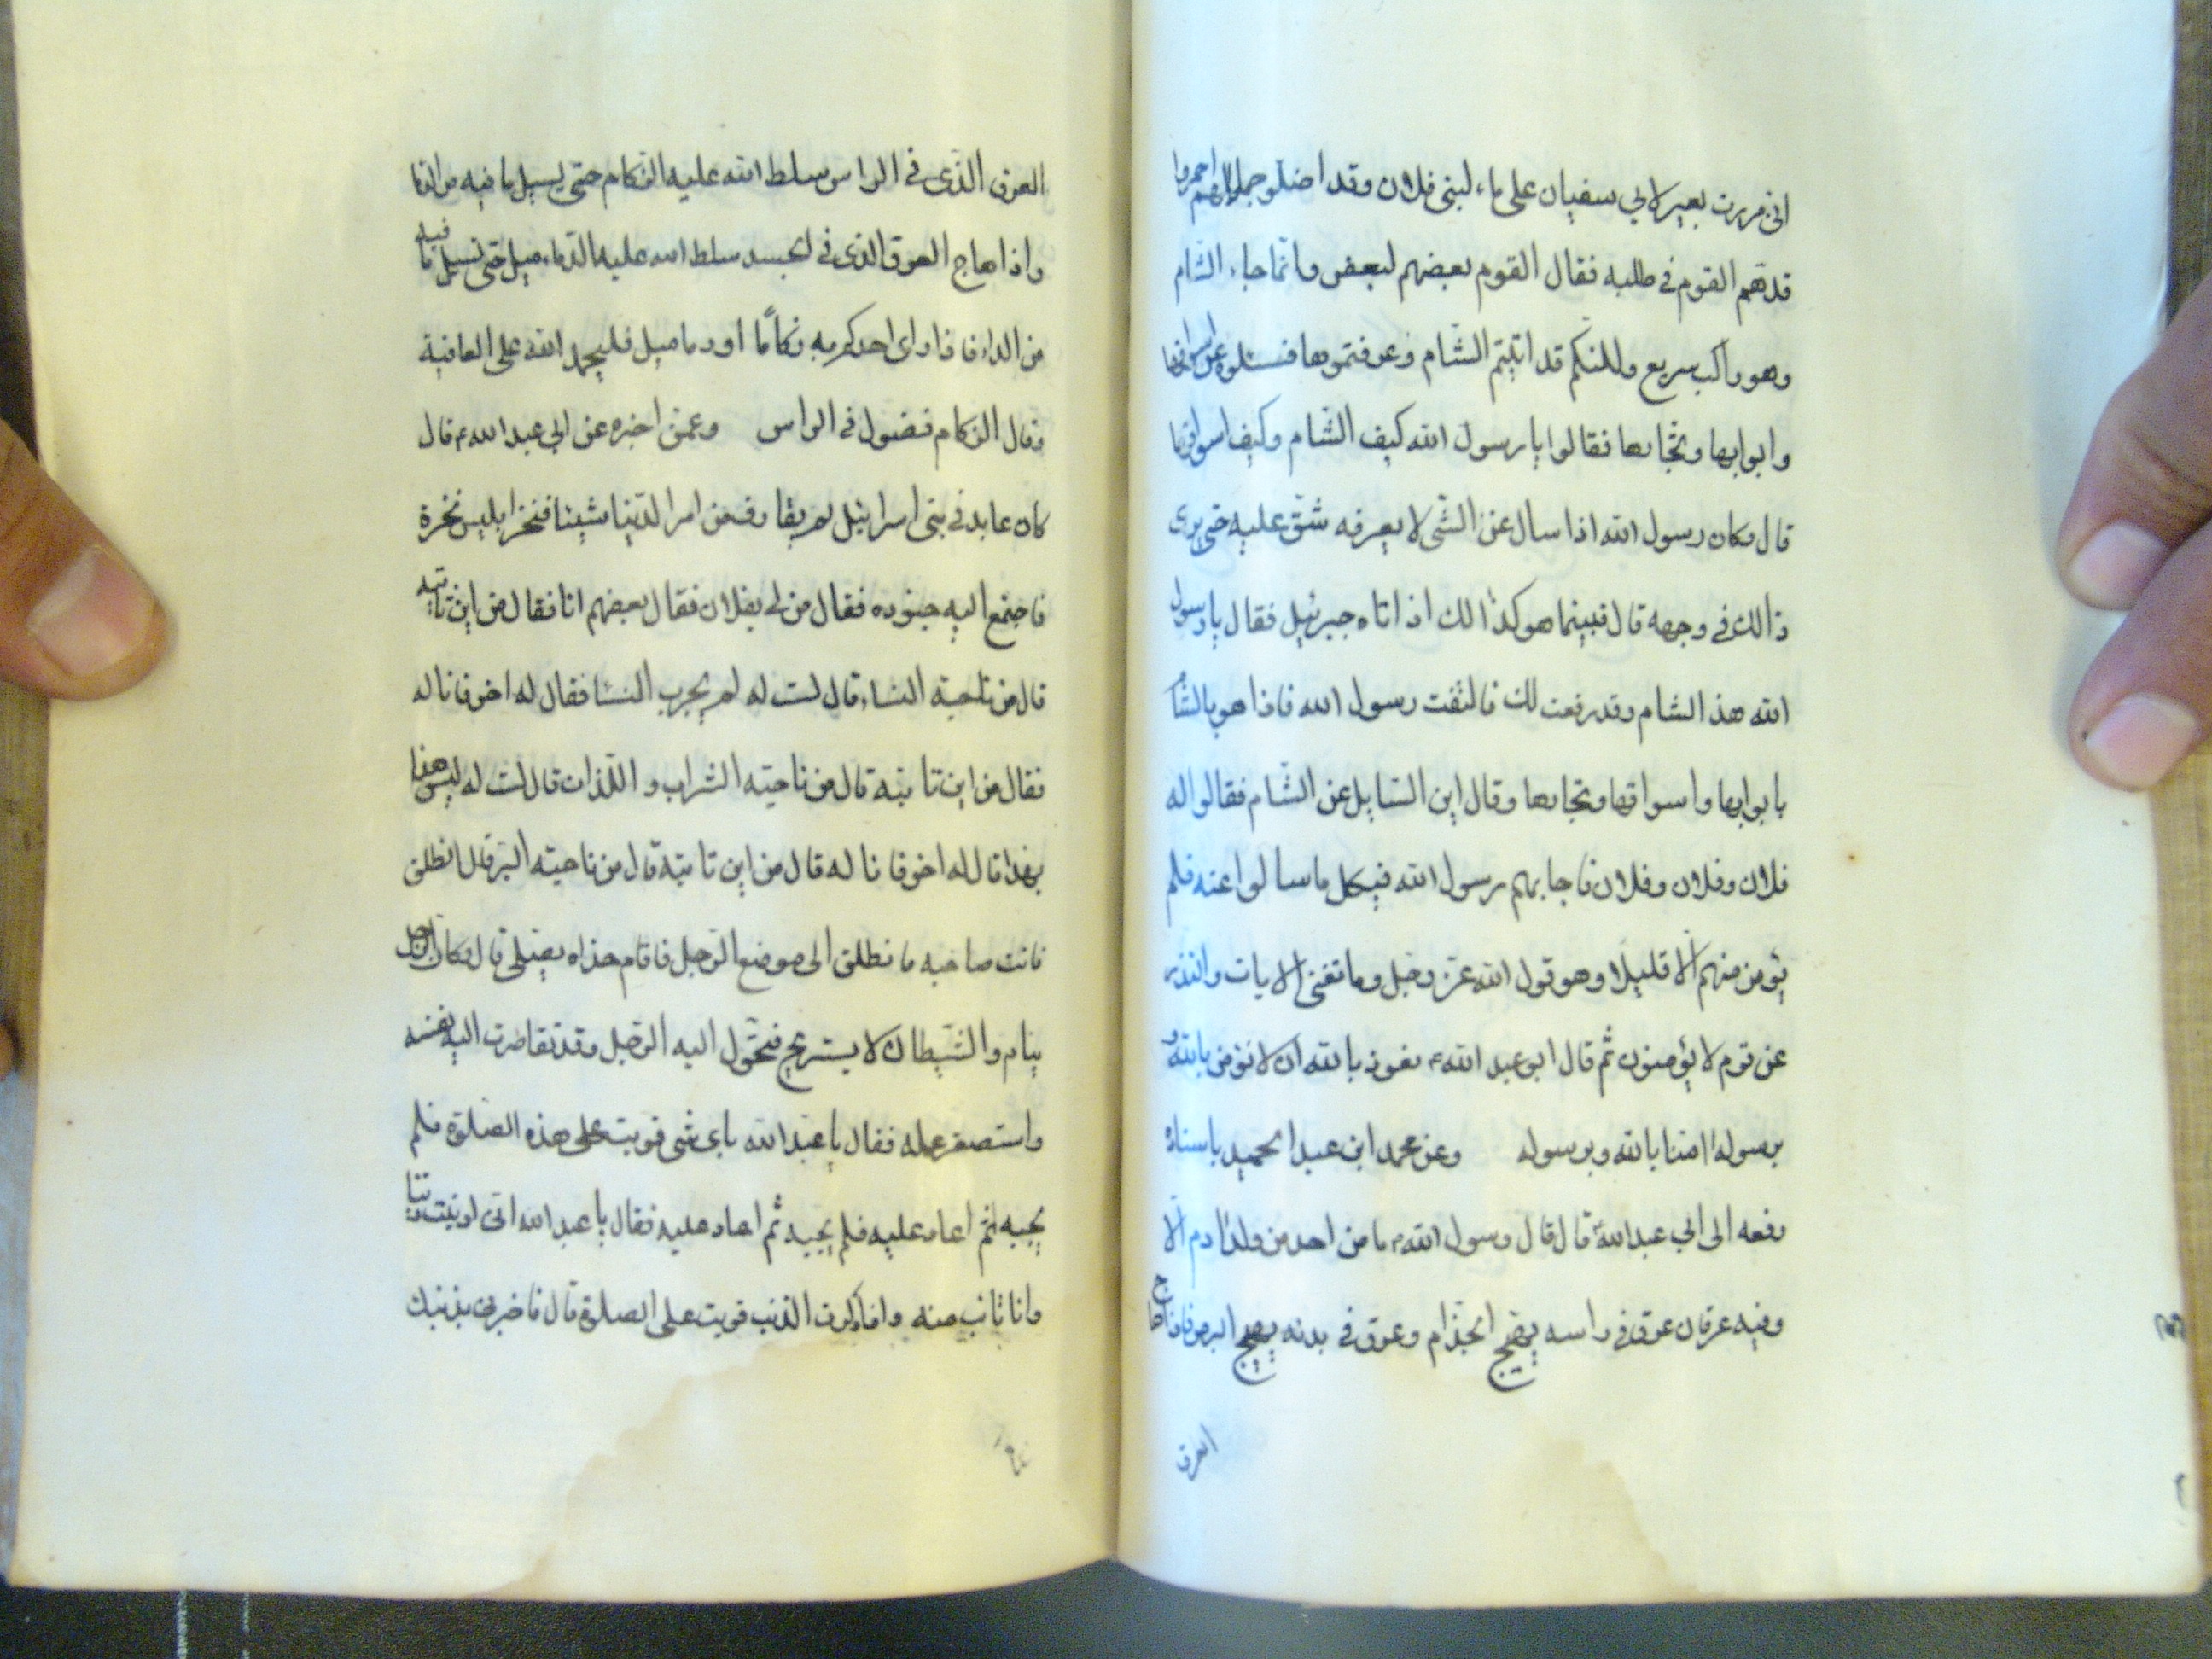 انى مررت بعير لابي سفيان على ماء لبنى فلان وقد اضلو جملا لهم احمر وا
قد هم القوم فى طلبه فقال القوم بعضهم لبعض وانما جاء الشام
وهو راكب سريع وللنكم قد اتيتم الشام وعرفتموها فسئلوه عن اسواقها
وابوابها وتجارها فقالوا يا رسول الله كيف الشام وكيف اسواقها
قال وكان رسول الله اذا سال عن الشى لا يعرفه شق عليه حتى يرى
ذالك فى وجهه قال فبينما هو كذالك اذ اتاه جبرئيل فقال يا رسول
الله هذ الشام وقد رفعت لك فالتفت رسول الله فاذا هو بالشام
بابوابها واسواقها وتجارها وقال اين السايل عن الشام فقالوا له
فلان وفلان وفلان فاجابهم رسول الله فى كل ما سالوا عنه فلم
يؤمن منهم الا قليلا وهو قول الله عز وجل وما تغنى الايات والنذر
عن قوم لا يؤمنون ثم قال ابو عبد الله ع نعوذ بالله ان لا نؤمن بالله و
برسوله امنا بالله وبرسوله وعن محمد ابن عبد الحميد باسناده
رفعه الى ابي عبد الله ع قال قال رسول الله ص ما من احد من ولد ادم الا
وفيه عرقان عرق فى راسه يهيج الجذام وعرق فى بدنه يهيج البرص فاذا هاج
العرق
العرق الذى فى الراس سلط الله عليه الزكام حتى يسيل ما فيه من الدا
واذا هاج العرق الذى فى الجسد سلط الله عليه الدماميل حتى تسيل ما فيه
من الداء فاذا راى احدكم به زكاما او دماميل فليحمد الله على العافية
وقال الزكام فضول فى الراس وعمن اخبره عن ابي عبد الله ع قال
كان عابد فى بنى اسرائيل لم يقارف من امر الدنيا شيئا فنخر ابليس نخرة
فاجتمع اليه جنوده فقال من لى بفلان فقال بعضهم انا فقال من اين تاتيه
قال من ناحية النساء قال لست له لم يجرب النسا فقال له اخر فانا له
فقال من اين تاتيه قال من ناحية الشراب واللذات قال لست له ليس هذا
بهذا قال له اخر فانا له قال من اين تاتيه قال من ناحية البر قال انطلق
فانت صاحبه فانطلق الى موضع الرجل فاقام حذاه يصلى قال وكان الرجل
ينام والشيطان لا يستريح فتحول اليه الرجل وقد تقاصرت اليه نفسه
واستصغر عمله فقال يا عبد الله باى شى قويت على هذه الصلوة فلم
يجيبه ثم اعاد عليه فلم يجيبه ثم اعاد عليه فقال يا عبد الله انى اذنبت ذنبا
وانا تائب منه واذا ذكرت الذنب قويت على الصلوة قال فاخبرنى بذنبك